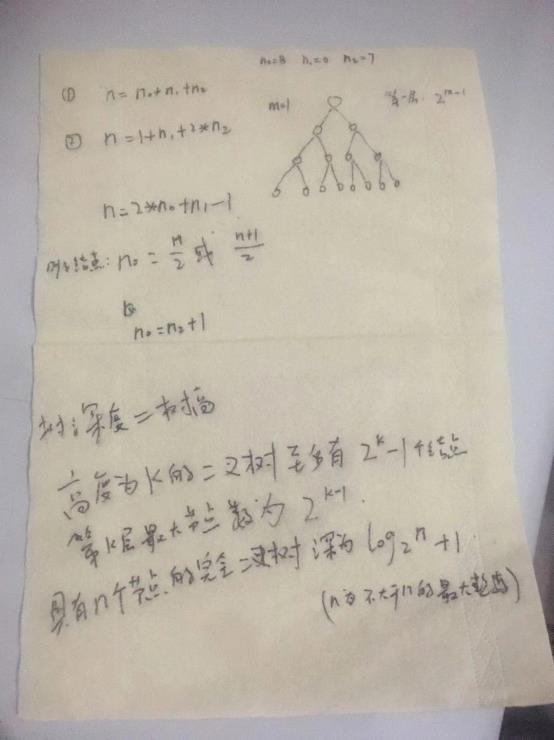 n₀=8 n₁=0 n₂=7
① n=n₀+n₁+n₂
m=1
第一层: 2^(m-1)
② n=1+n₁+2*n₂
n=2*n₀+n₁-1
叶子结点: n₀=n/2 或 (n+1)/2
n₀=n₂+1
树深度=树高
高度为K的二叉树至多有 2^k-1个结点
第K层最大节点数为 2^(k-1).
具有n个节点的完全二叉树深为 log₂ⁿ+1.
(n为不大于n的最大整数)